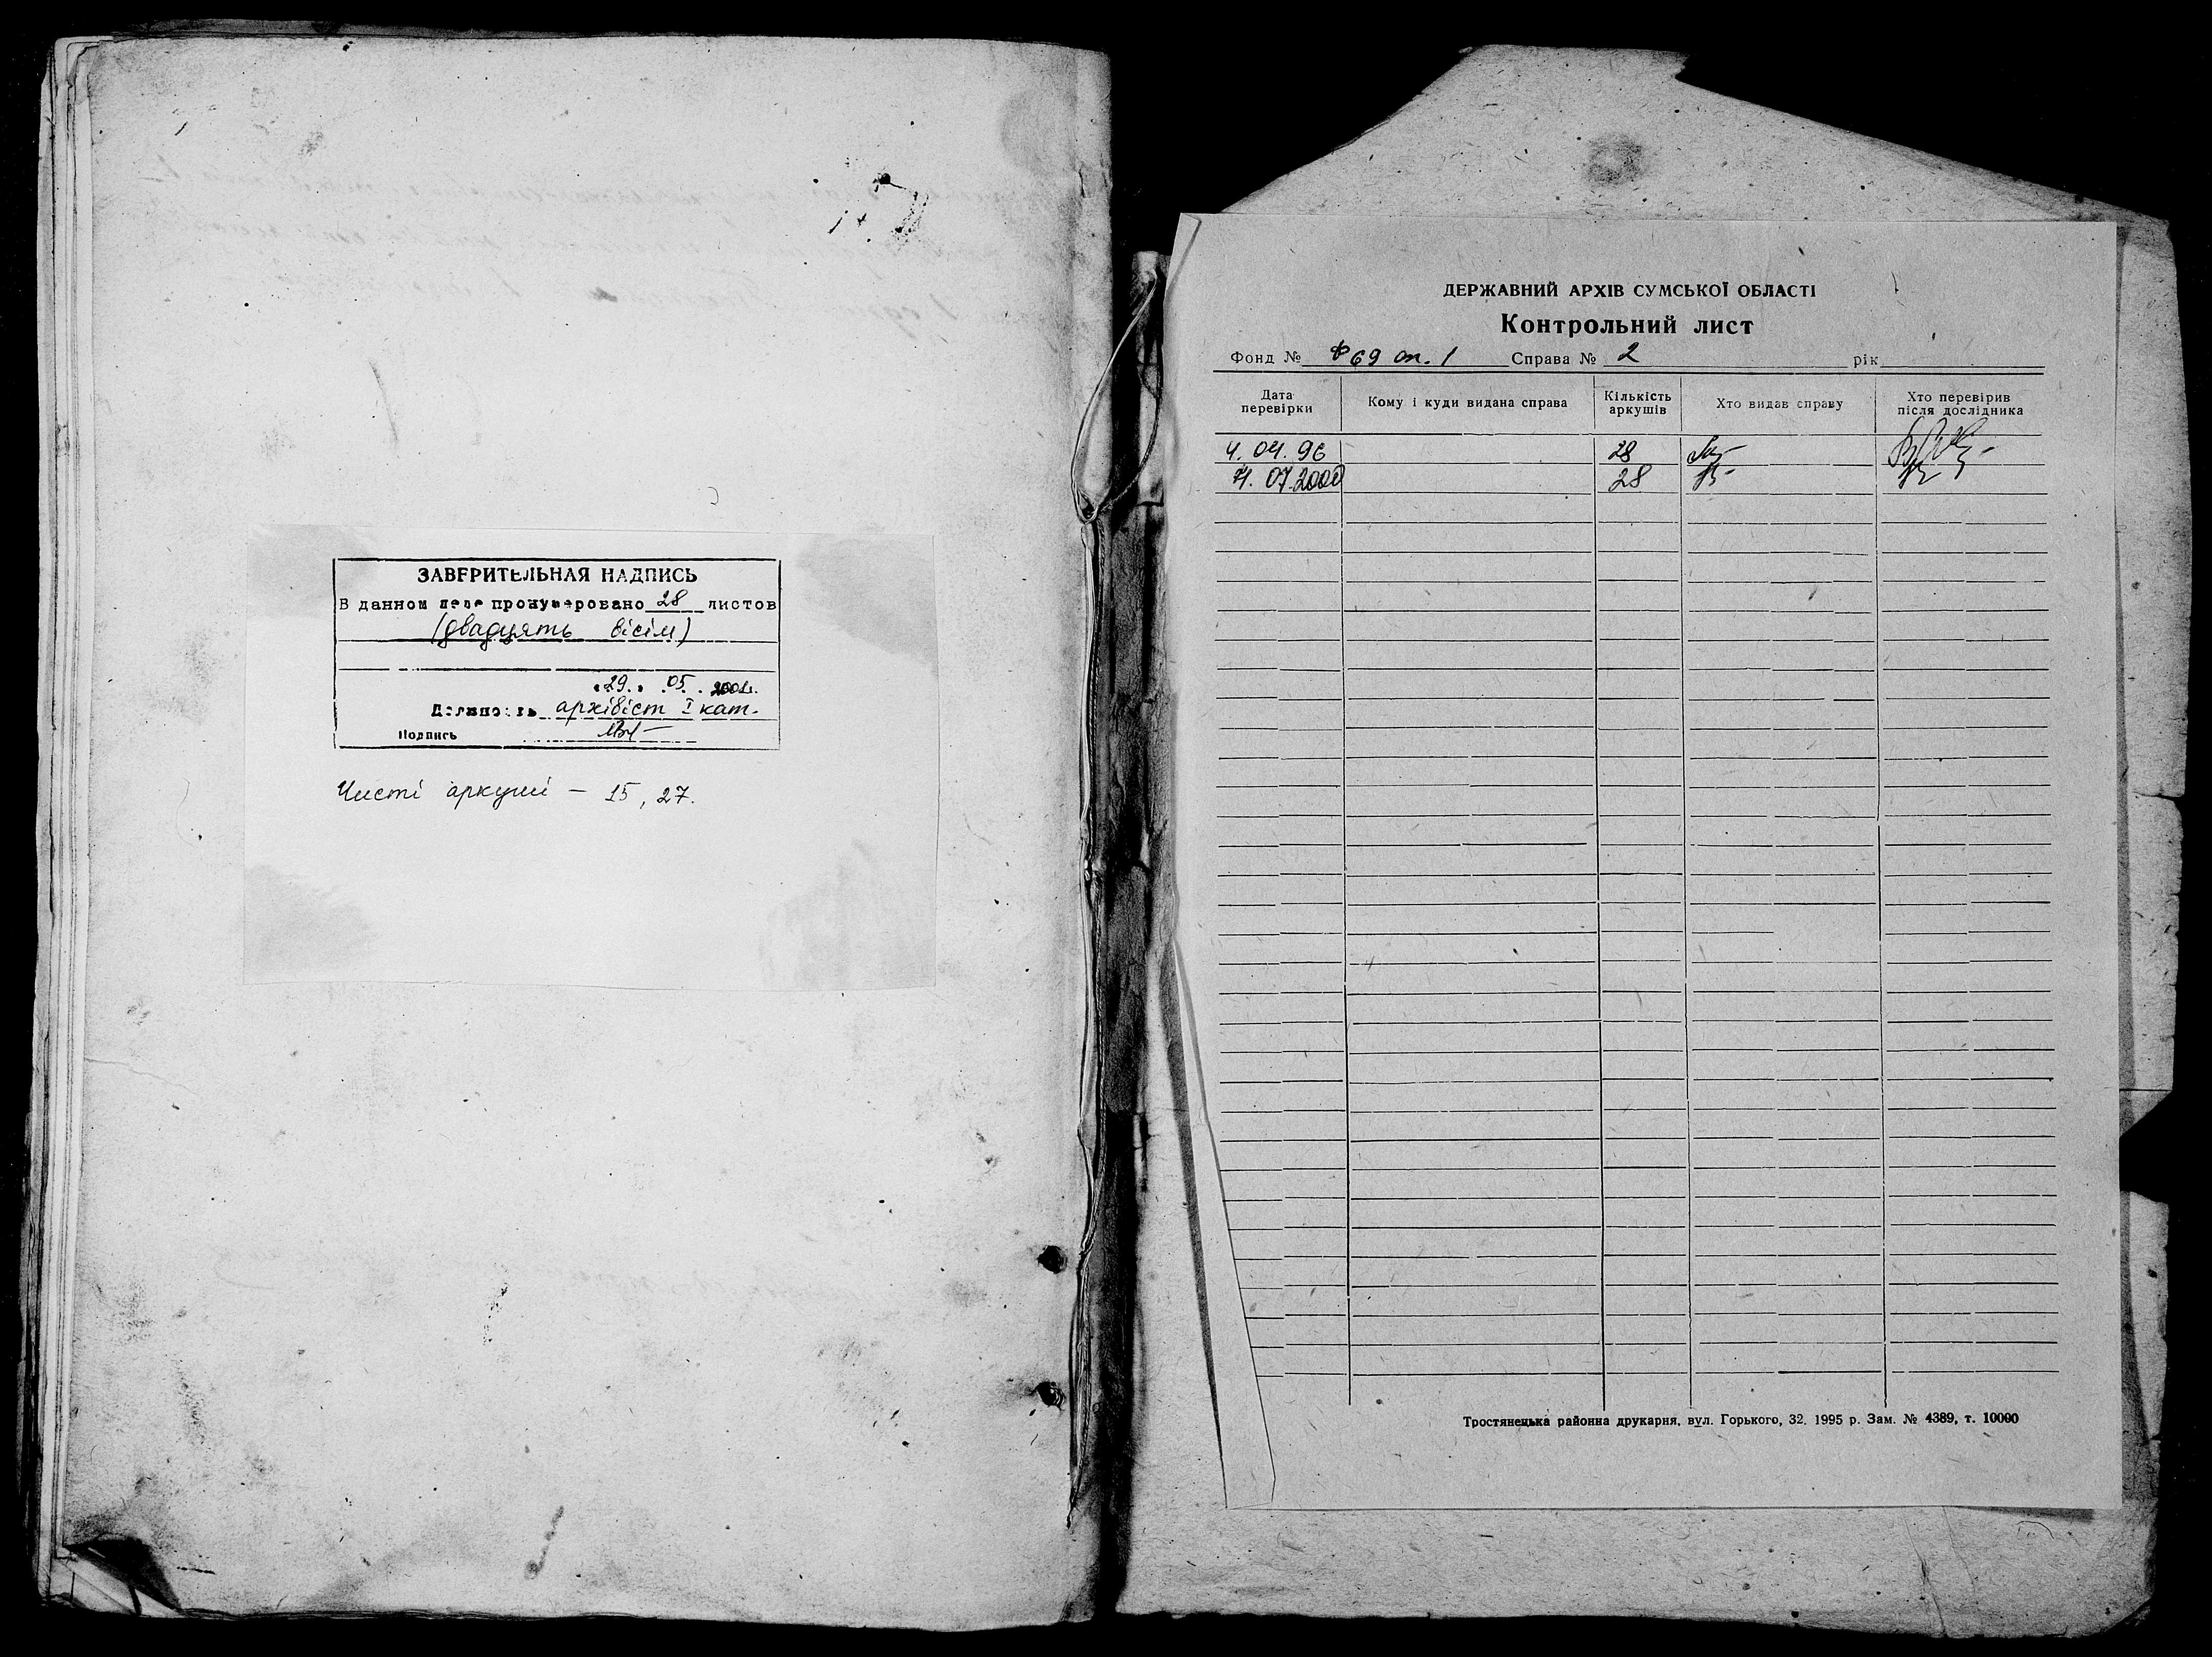 ЗАВЕРИТЕЛЬНАЯ НАДПИСЬ
В данном деле пронумеровано 28 листов
(двадцять вісім)
«29» 05. 2001г.
Должность архівіст I кат.
Подпись
Чисті аркуші – 15, 27.
ДЕРЖАВНИЙ АРХІВ СУМСЬКОЇ ОБЛАСТІ
Контрольний лист
Фонд № Ф69 оп. 1 Справа № 2 рік
Дата перевірки
Кому і куди видана справа
Кількість аркушів
Хто видав справу
Хто перевірив після дослідника
4. 04. 96 28
07.2000 28
Тростянецька районна друкарня, вул. Горького, 32. 1995 р. Зам. № 4389, т. 10000